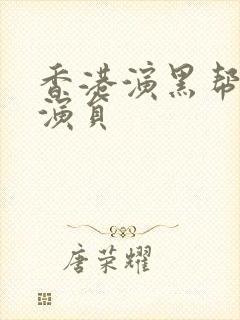 香港演黑帮
演员
唐荣耀